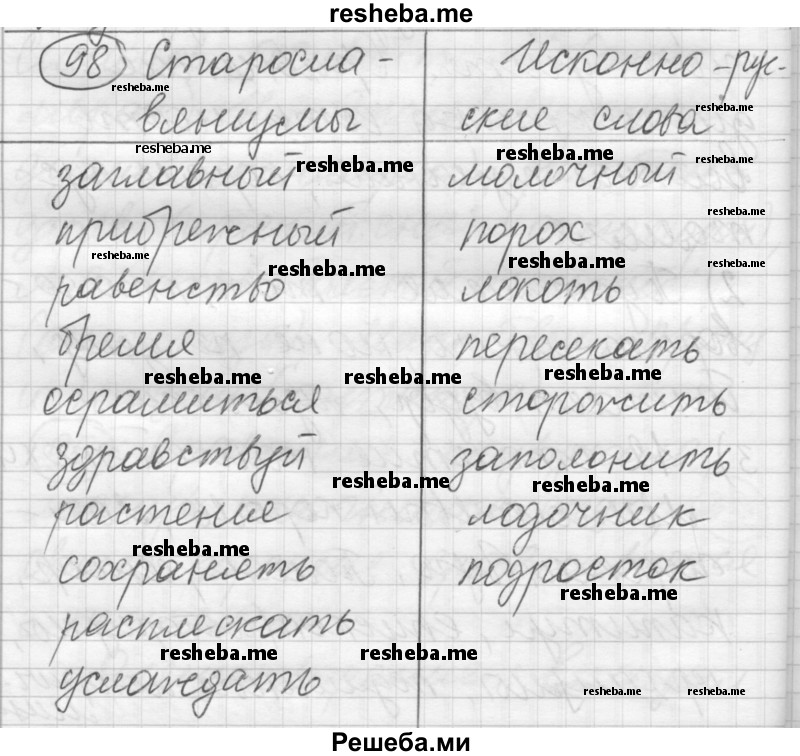 resheba.me
98 Старосла- Исконно-рус-
resheba.me resheba.me
вянизмы ские слова
resheba.me resheba.me resheba.me resheba.me
заглавный молочный
resheba.me
прибрежный порох
resheba.me resheba.me resheba.me resheba.me
равенство локоть
бремя пересекать
resheba.me resheba.me resheba.me
осрамиться сторожить
здравствуй заполонить
resheba.me resheba.me
растение лодочник
resheba.me
сохранять подросток
resheba.me
расплескать
resheba.me resheba.me
услаждать
resheba.me resheba.me
Решеба.ми